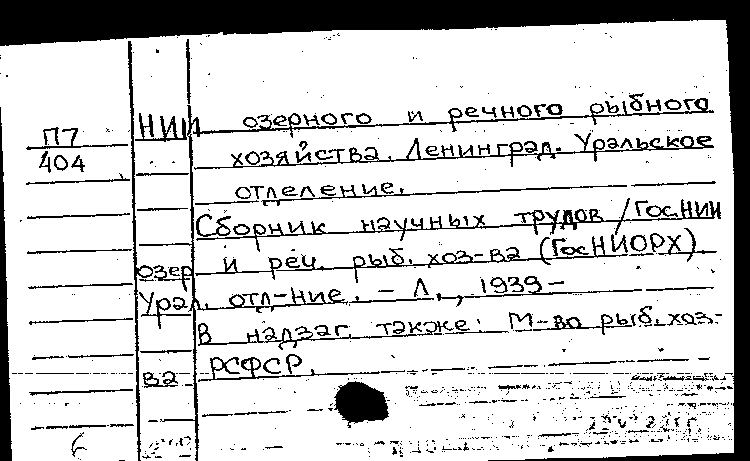 П7
404
НИИ озерного и речного рыбного
хозяйства. Ленинград. Уральское
отделение.
Сборник научных трудов / ГосНИИ
озер и реч. рыб. хоз-ва (ГосНИОРХ).
Урал. отд-ние. – Л., 1939 –
В надзаг. также: М-во рыб. хоз-
ва РСФСР.
6